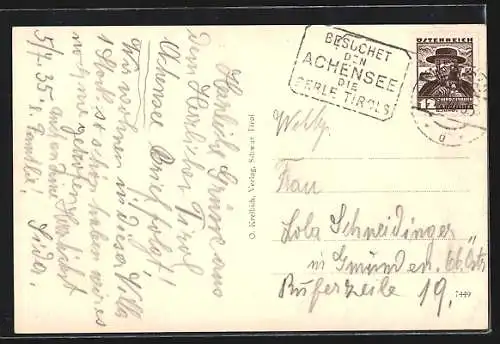 BESUCHET
DEN
ACHENSEE
DIE
PERLE TIROLS
ÖSTERREICH
12
Herzliche Grüsse aus
dem Herrlichen Tirol
Achensee Brief folgt!
Wir wohnen in dieser Villa
1 Stock, so schön haben wir es
noch nie getroffen
auch an Deine
5/7. 35 Familie!
O. Kreibich, Verlag, Schwaz Tirol
Frau
Lola Schneidinger
in Gmünden. Ob. Öst.
Kuferzeile 19.
7449